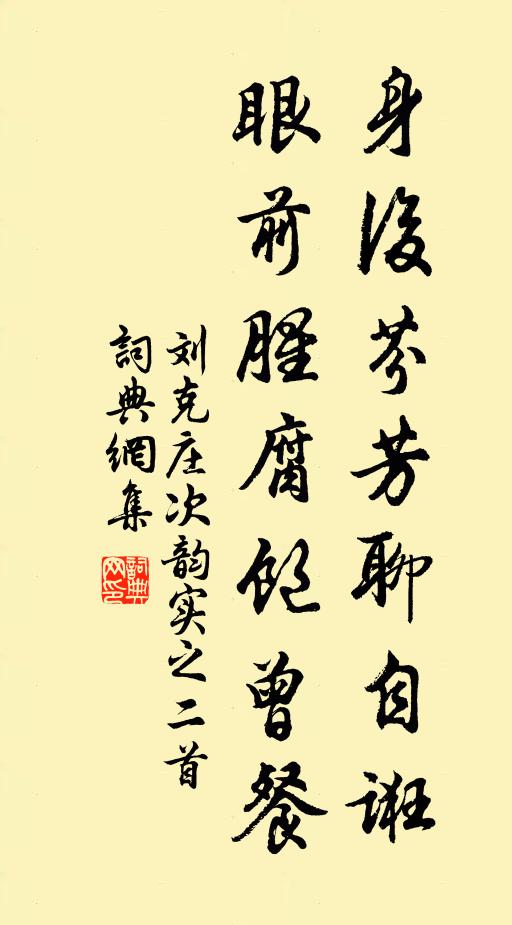 身後芬芳聊自誑
眼前腥腐飽曾餐
刘克庄次韵实之二首
詞典網集
詞典網印